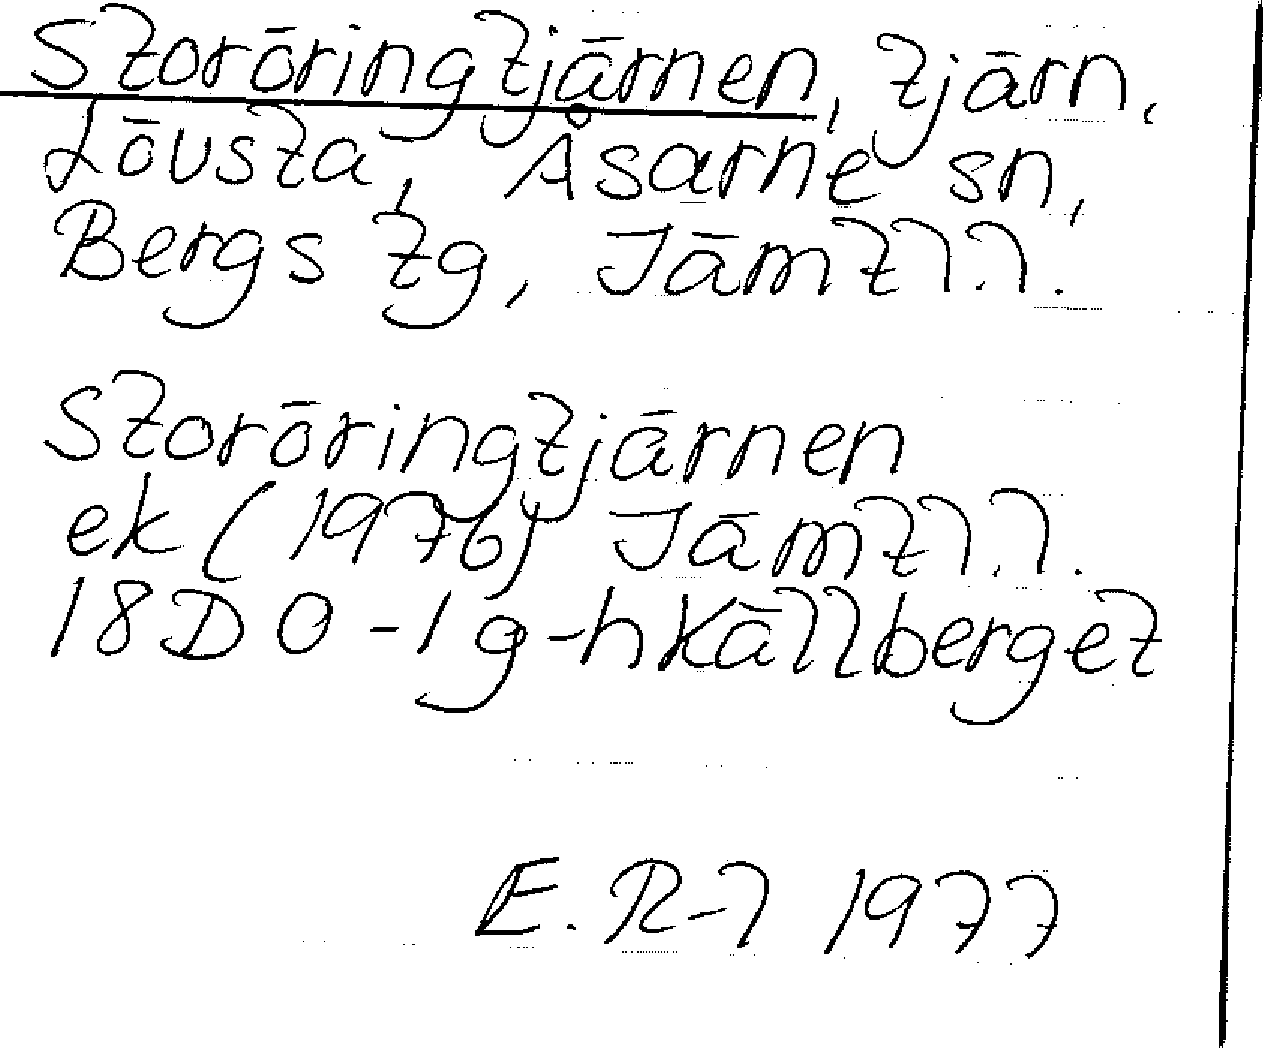 Stororingtjärnen, tjärn,
Lövsta, Åsarne sn,
Bergs tg, Jämtl.l.
Stororingtjärnen
ek (1976) Jämtl.l.
18D 0-1g-h Källberget
E.R-l 1977